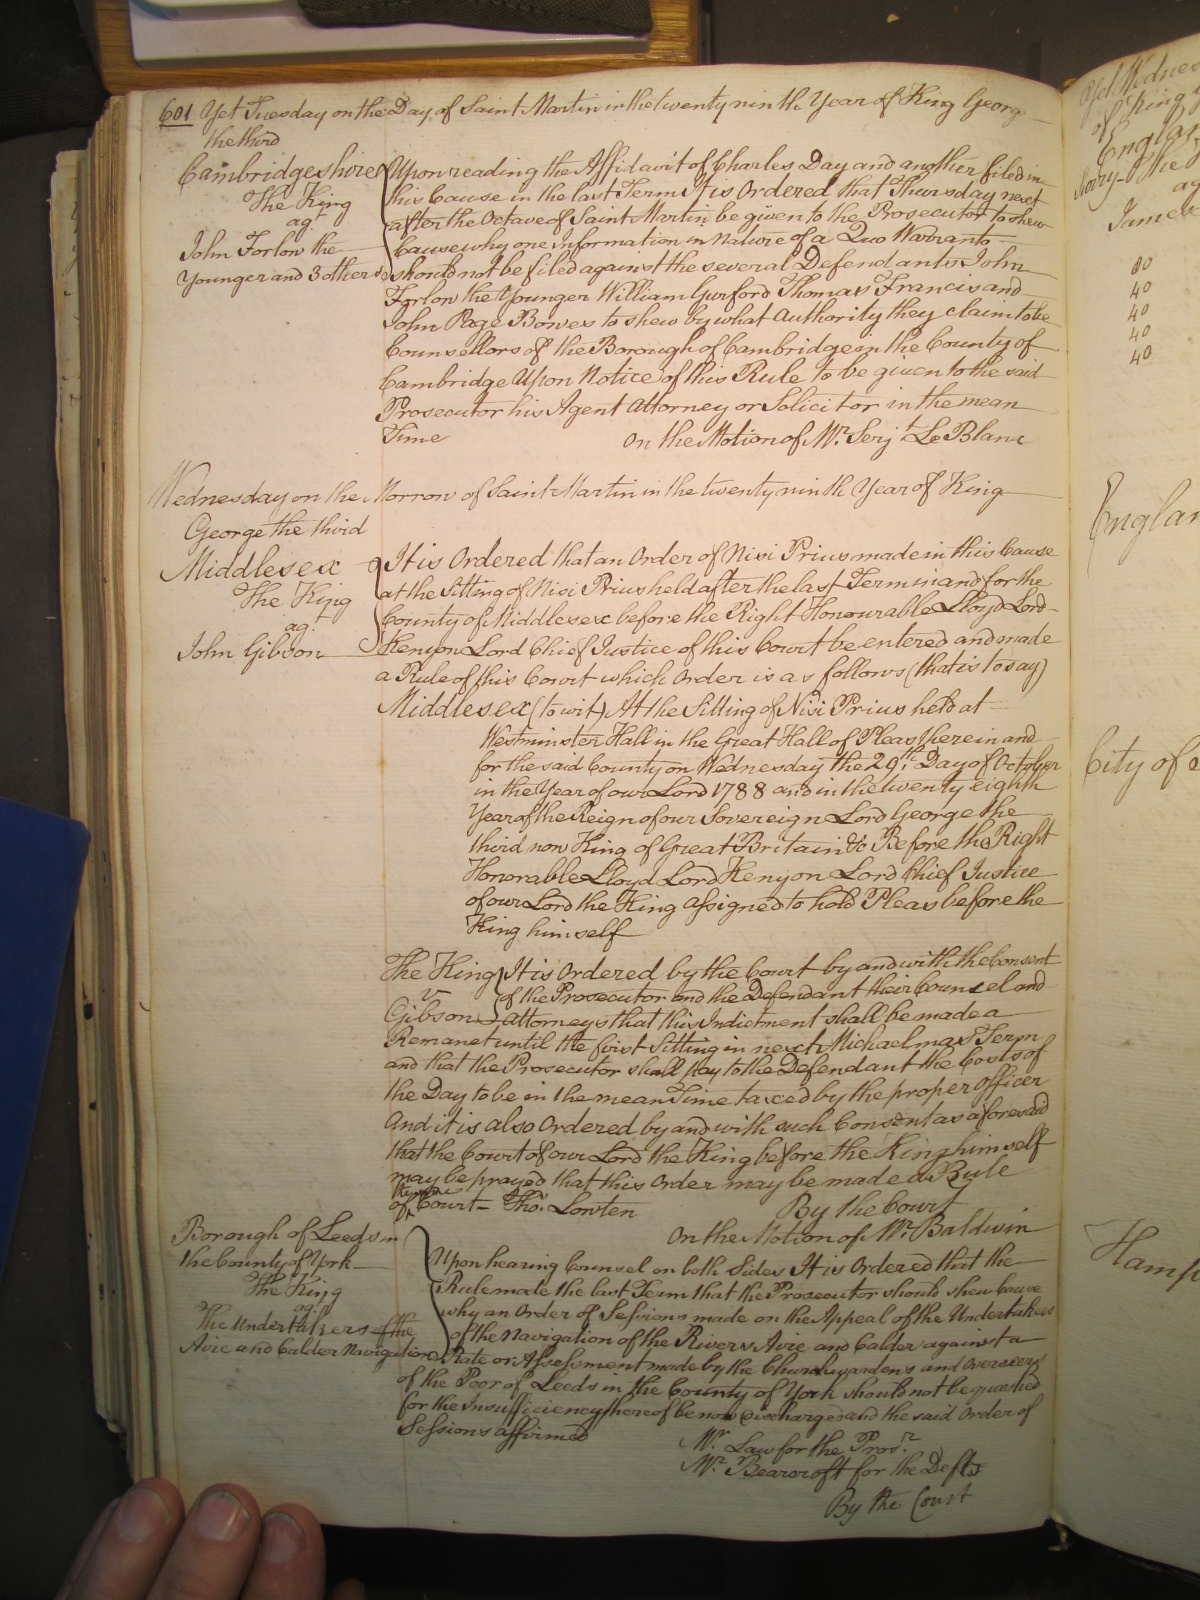 601 Yet Tuesday on the Day of Saint Martin in the twenty ninth Year of King George
the third
Cambridgeshire
The King
agt
John Forlow the
Younger and 3 others
Upon reading the Affidavit of Charles Day and another filed in
this Cause in the last Term It is Ordered that Thursday next
after the Octave of Saint Martin be given to the Prosecutor to shew
Cause why one Information in Nature of a Quo Warranto
should not be filed against the several Defendants John
Forlow the Younger William Gurford Thomas Francis and
John Page Bowes to shew by what Authority they claim to be
Counsellors of the Borough of Cambridge in the County of
Cambridge Upon Notice of this Rule to be given to the said
Prosecutor his Agent Attorney or Solicitor in the mean
Time On the Motion of Mr. Serjt. Le Blanc
Wednesday on the Morrow of Saint Martin in the twenty ninth Year of King
George the third
Middlesex
The King
agt
John Gibson
It is Ordered that an Order of Nisi Prius made in this Cause
at the Sitting of Nisi Prius held after the last Term in and for the
County of Middlesex before the Right Honourable Lloyd Lord
Kenyon Lord Chief Justice of this Court be entered and made
a Rule of this Court which Order is as follows (that is to say)
Middlesex (to wit) At the Sitting of Nisi Prius held at
Westminster Hall in the Great Hall of Pleas therein and
for the said County on Wednesday the 29th. Day of October
in the Year of our Lord 1788 and in the twenty eighth
Year of the Reign of our Sovereign Lord George the
third now King of Great Britain &c Before the Right
Honorable Lloyd Lord Kenyon Lord Chief Justice
of our Lord the King assigned to hold Pleas before the
King himself
The King
v
Gibson
It is Ordered by the Court by and with the Consent
of the Prosecutor and the Defendant their Counsel and
Attorneys that this Indictment shall be made a
Remanet until the first Sitting in next Michaelmas Term
and that the Prosecutor shall pay to the Defendant the Costs of
the Day to be in the mean Time taxed by the proper Officer
And it is also Ordered by and with such Consent as aforesaid
that the Court of our Lord the King before the King himself
may be prayed that this Order may be made a Rule
of Court - Thos. Lowten By the Court
On the Motion of Mr. Baldwin
Borough of Leeds in
the County of York
The King
agt.
The Undertakers of the
Avie and Calder Navigation
Upon hearing Counsel on both Sides It is Ordered that the
Rule made the last Term that the Prosecutor should shew Cause
why an Order of Sessions made on the Appeal of the Undertakers
of the Navigation of the Rivers Avie and Calder against a
Rate or Assessment made by the Churchwardens and Overseers
of the Poor of Leeds in the County of York should not be quashed
for the Insufficiency thereof be now discharged and the said Order of
Sessions affirmed
Mr. Law for the Prosr.
Mr. Bearcroft for the Defts
By the Court
Yet Wednes
of King
Englan
ag
James
80
40
40
40
40
Englan
City of
Hamp